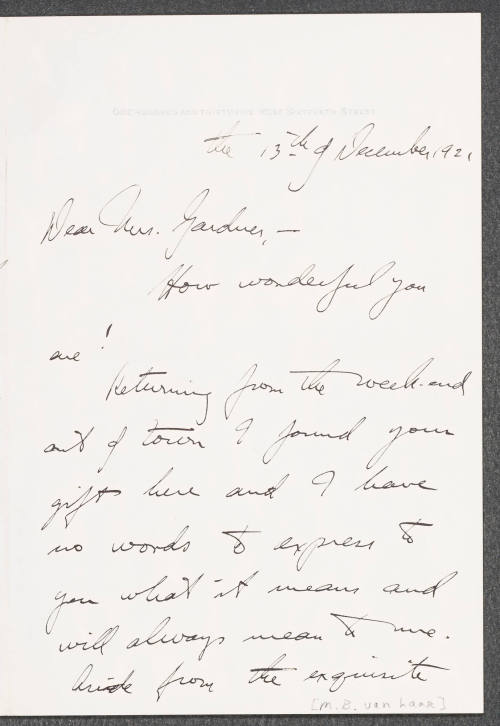 the 13th of December, 1921
Dear Mrs. Gardner, —
How wonderful you
are!
Returning from the week-end
out of town I found your
gifts here and I have
no words to express to
you what it means and
will always mean to me.
Aside from the exquisite
[M. B. van Laar]